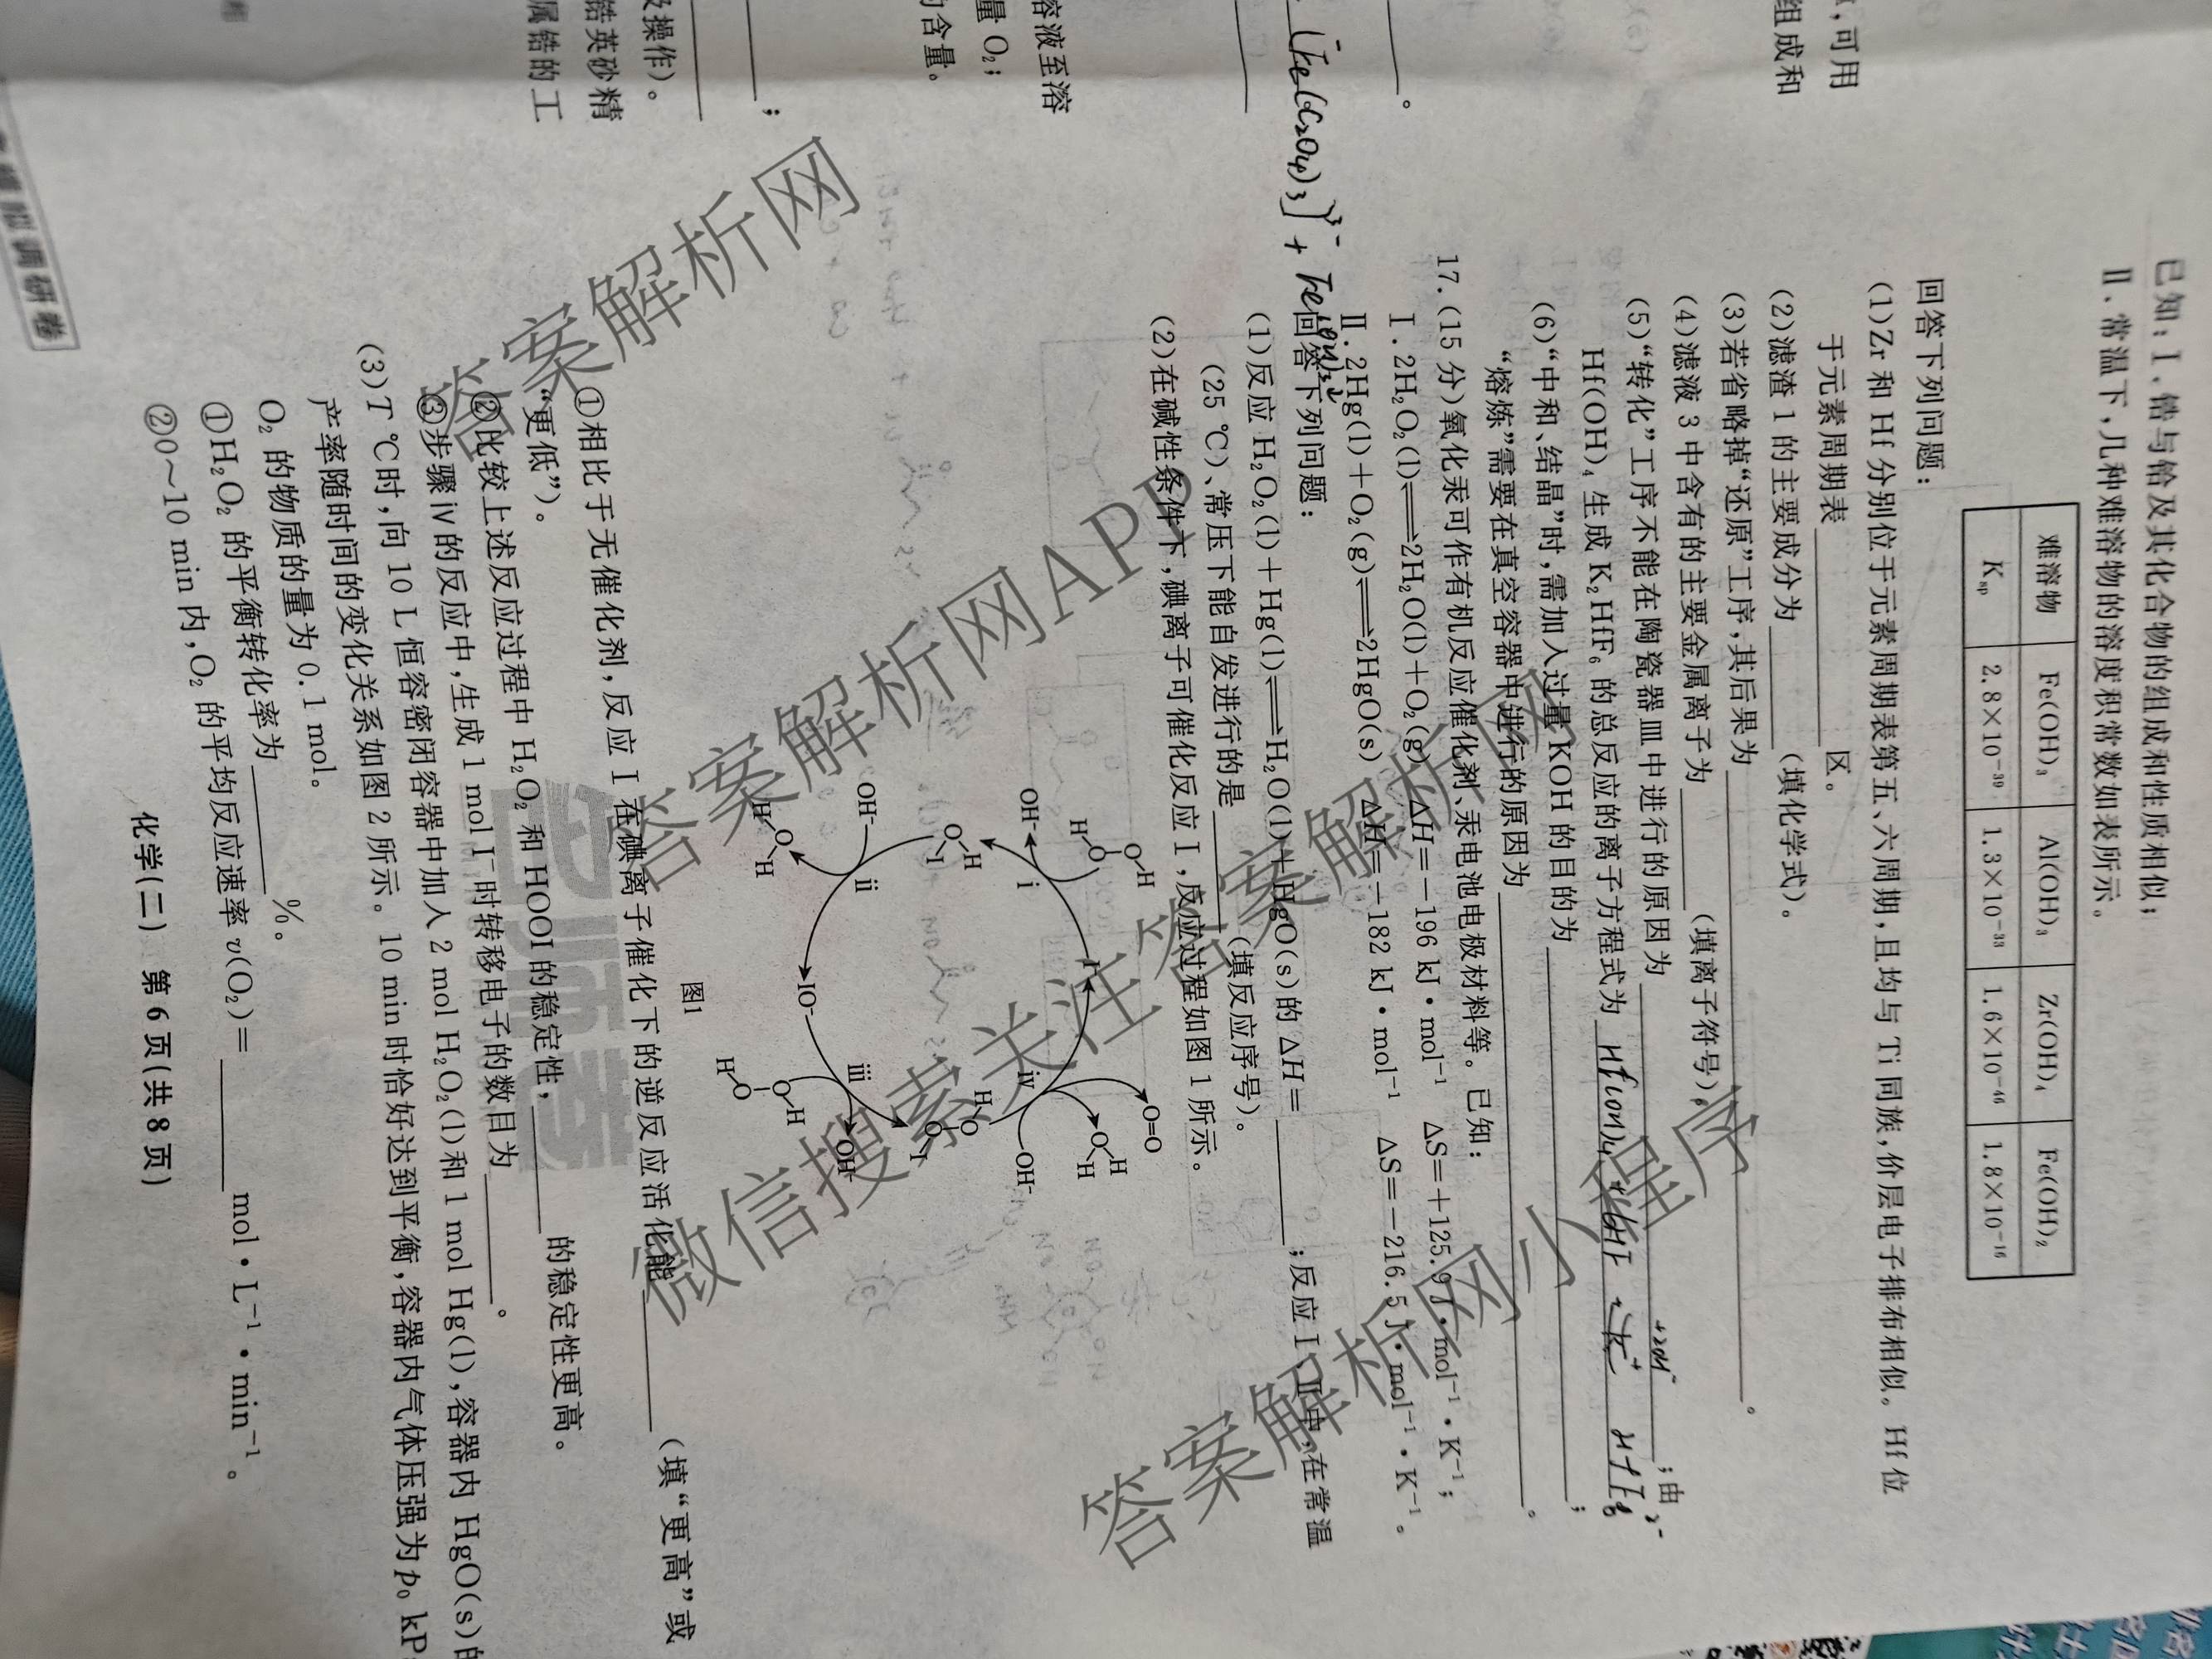 已知：Ⅰ.锆与铪及其化合物的组成和性质相似；
Ⅱ.常温下，几种难溶物的溶度积常数如表所示。
难溶物 Fe(OH)₃ Al(OH)₃ Zr(OH)₄ Fe(OH)₂
Kₛₚ 2.8×10⁻³⁹ 1.3×10⁻³³ 1.6×10⁻⁴⁶ 1.8×10⁻¹⁶
回答下列问题：
(1)Zr和Hf分别位于元素周期表第五、六周期，且均与Ti同族，价层电子排布相似。Hf位
于元素周期表________区。
(2)滤渣1的主要成分为________(填化学式)。
(3)若省略掉“还原”工序，其后果为________。
(4)滤液3中含有的主要金属离子为________(填离子符号)。
(5)“转化”工序不能在陶瓷器皿中进行的原因为________；由
Hf(OH)₄生成K₂HfF₆的总反应的离子方程式为
(6)“中和、结晶”时，需加入过量KOH的目的为________；
“熔炼”需要在真空容器中进行的原因为________。
17.(15分)氧化汞可作有机反应催化剂、汞电池电极材料等。已知：
Ⅰ.2H₂O₂(l)⇌2H₂O(l)+O₂(g) ΔH=−196 kJ·mol⁻¹ ΔS=+125.9 J·mol⁻¹·K⁻¹；
Ⅱ.2Hg(l)+O₂(g)⇌2HgO(s) ΔH=−182 kJ·mol⁻¹ ΔS=−216.5 J·mol⁻¹·K⁻¹。
回答下列问题：
(1)反应H₂O₂(l)+Hg(l)⇌H₂O(l)+HgO(s)的ΔH=________；反应Ⅰ、Ⅱ中，在常温
(25 ℃)、常压下能自发进行的是________(填反应序号)。
(2)在碱性条件下，碘离子可催化反应Ⅰ，反应过程如图1所示。
OH⁻ i I⁻ iv O=O
OH⁻
OH⁻ ii IO⁻ iii OH⁻
图1
①相比于无催化剂，反应Ⅰ在碘离子催化下的逆反应活化能________(填“更高”或
“更低”)。
②比较上述反应过程中H₂O₂和HOOI的稳定性，________的稳定性更高。
③步骤ⅳ的反应中，生成1 mol I⁻时转移电子的数目为________。
(3)T ℃时，向10 L恒容密闭容器中加入2 mol H₂O₂(l)和1 mol Hg(l)，容器内HgO(s)的
产率随时间的变化关系如图2所示。10 min时恰好达到平衡，容器内气体压强为p₀ kPa
O₂的物质的量为0.1 mol。
①H₂O₂的平衡转化率为________%。
②0～10 min内，O₂的平均反应速率v(O₂)=________mol·L⁻¹·min⁻¹。
化学(二) 第6页(共8页)
，可用
组成和
[Fe(C₂O₄)₃]³⁻ +
溶液至溶
量O₂；
的含量。
及操作)。
锆英砂精
属锆的工
模拟调研卷
答案解析网
答案解析网APP
微信搜索关注答案解析网
答案解析网小程序